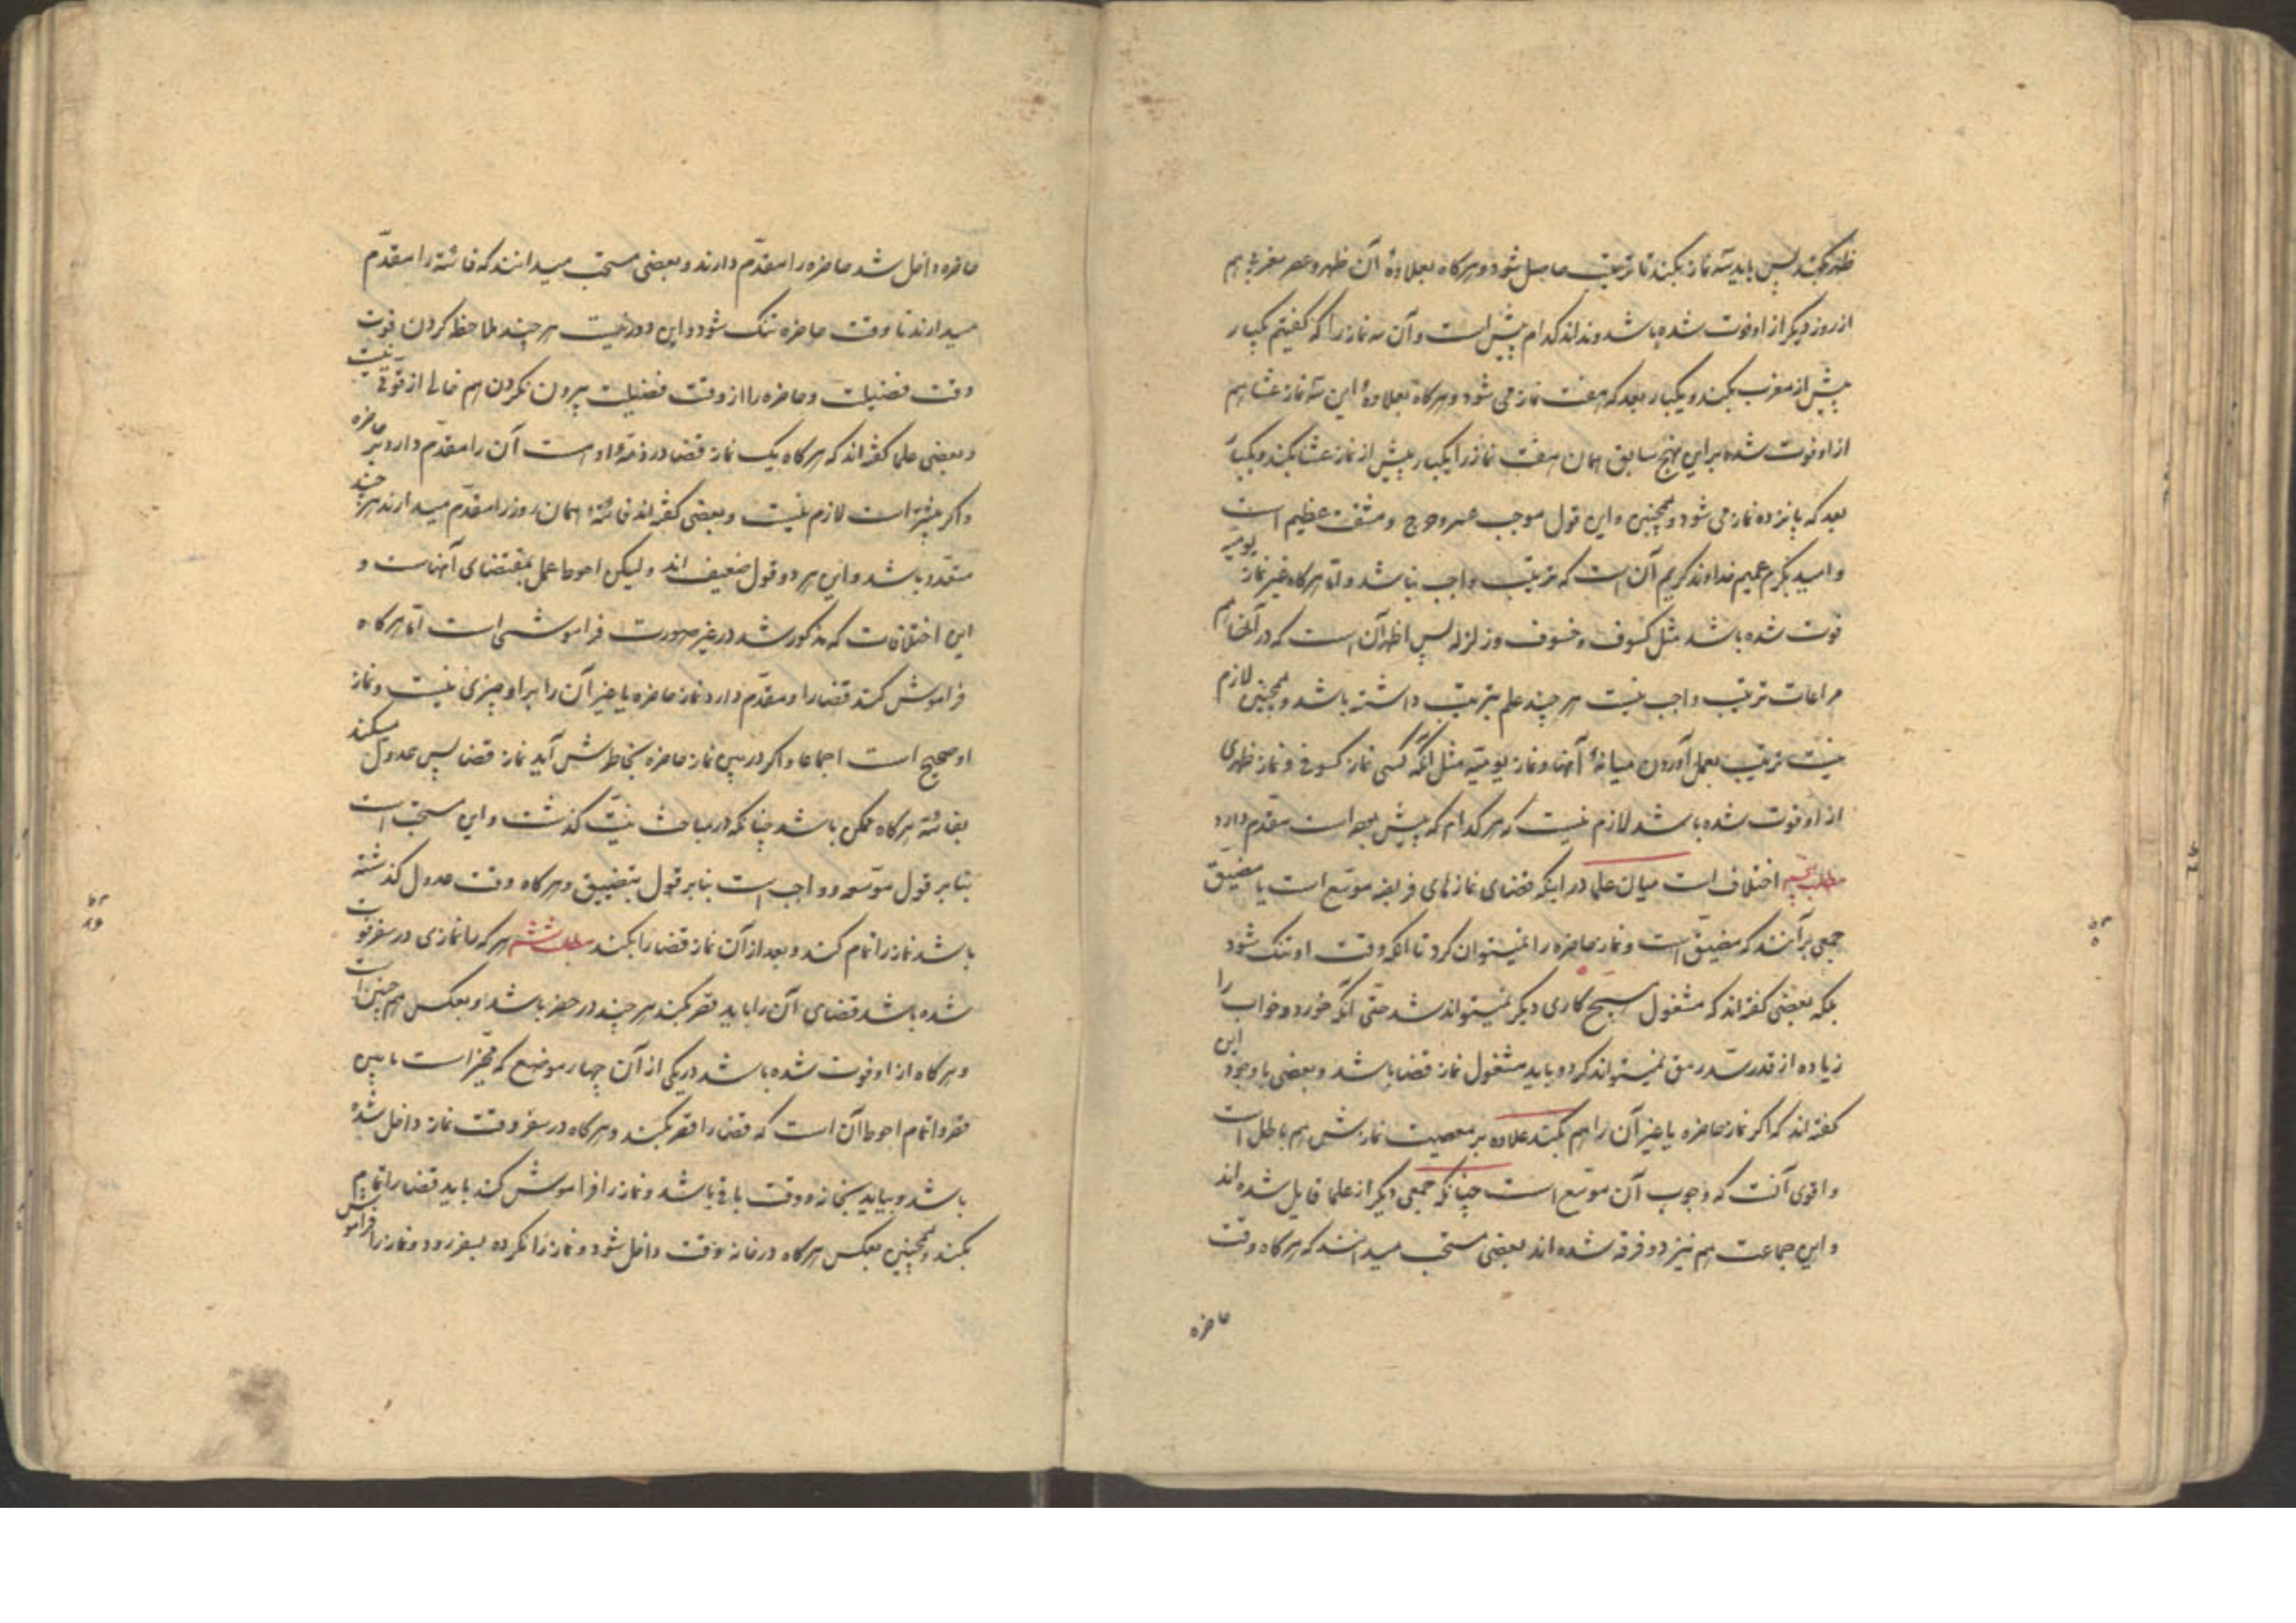 ظهر بکند پس باید سه نماز بکند تا ترتیب حاصل شود و هرکاه بعلاوهٔ آن ظهر و عصر مغربی هم
از روز دیکر از او فوت شده باشد و نداند کدام پیش است و آن سه نماز را که کفتیم یکبار
پیش از مغرب بکند و یکبار بعد که هفت نماز می شود و هرکاه بعلاوهٔ این سه نماز عشا هم
از او فوت شده بر این نهج سابق همان هفت نماز را یکبار پیش از نماز عشا بکند و یکبار
بعد که پانزده نماز می شود و همچنین و این قول موجب عسر و حرج و مشقت عظیم است
و امید بکرم عمیم خداوند کریم آن است که ترتیب واجب نباشد و اما هرکاه غیر نماز یومیه
فوت شده باشد مثل کسوف و خسوف و زلزله پس اظهر آن است که در آنها هم
مراعات ترتیب واجب نیست هر چند علم بترتیب داشته باشد و همچنین لازم
نیست ترتیب بعمل آوردن میانهٔ آنها و نماز یومیه مثل آنکه کسی نماز کسوفی و نماز ظهری
از او فوت شده باشد لازم نیست که هر کدام که پیش بوده است مقدم دارد
مطلب پنجم اختلاف است میان علما در اینکه قضای نمازهای فریضه موسّع است یا مضیّق
جمعی بر آنند که مضیّق است و نماز حاضره را نمیتوان کرد تا آنکه وقت او تنک شود
بلکه بعضی کفته‌اند که مشغول هیچ کاری دیکر نمیتواند شد حتّی آنکه خورد و خواب را
زیاده از قدر سدّ رمق نمیتواند کرد و باید مشغول نماز قضا باشد و بعضی با وجود این
کفته‌اند که اکر نماز حاضره یا غیر آن را هم بکند علاوه بر معصیت نمازش هم باطل است
و اقوی آنست که وجوب آن موسّع است چنانکه جمعی دیکر از علما قایل شده‌اند
و این جماعت هم نیز دو فرقه شده‌اند بعضی مستحب میدانند که هرکاه وقت
حاضره
حاضره داخل شد حاضره را مقدّم دارند و بعضی مستحب میدانند که فائته را مقدّم
میدارند تا وقت حاضره تنک شود و این دور نیست هر چند ملاحظه کردن فوت
وقت فضیلت و حاضره را از وقت فضیلت بیرون نکردن هم خالی از قوّتی نیست
و بعضی علما کفته‌اند که هرکاه یک نماز قضا در ذمهٔ او است آن را مقدّم دارد بر حاضره
و اکر بیشتر است لازم نیست و بعضی کفته‌اند فائتهٔ همان روز را مقدّم میدارند هر چند
متعدد باشد و این هر دو قول ضعیف اند و لیکن احوط عمل بمقتضای آنهاست و
این اختلافات که مذکور شد در غیر صورت فراموشی است اما هرکاه
فراموش کند قضا را و مقدّم دارد نماز حاضره یا غیر آن را بر او چیزی نیست و نماز
او صحیح است اجماعا و اکر در بین نماز حاضره بخاطرش آید نماز قضا پس عدول میکند
بفائته هرکاه ممکن باشد چنانکه در مباحث نیّت کذشت و این مستحب است
بنا بر قول موسعه و واجب است بنا بر قول بتضییق و هرکاه وقت عدول کذشته
باشد نماز را تمام کند و بعد از آن نماز قضا را بکند مطلب ششم هر که را نمازی در سفر فوت
شده باشد قضای آن را باید قصر بکند هر چند در حضر باشد و بعکس هم چنین است
و هرکاه از او فوت شده باشد در یکی از آن چهار موضع که مخیّر است مابین
قصر و اتمام احوط آن است که قضا را قصر بکند و هرکاه در سفر وقت نماز داخل شده
باشد و بیاید بخانه و وقت باقی باشد و نماز را فراموش کند باید قضا را تمام
بکند و همچنین بعکس هرکاه در خانه وقت داخل شود و نماز را نکرده بسفر رود و نماز را فراموش